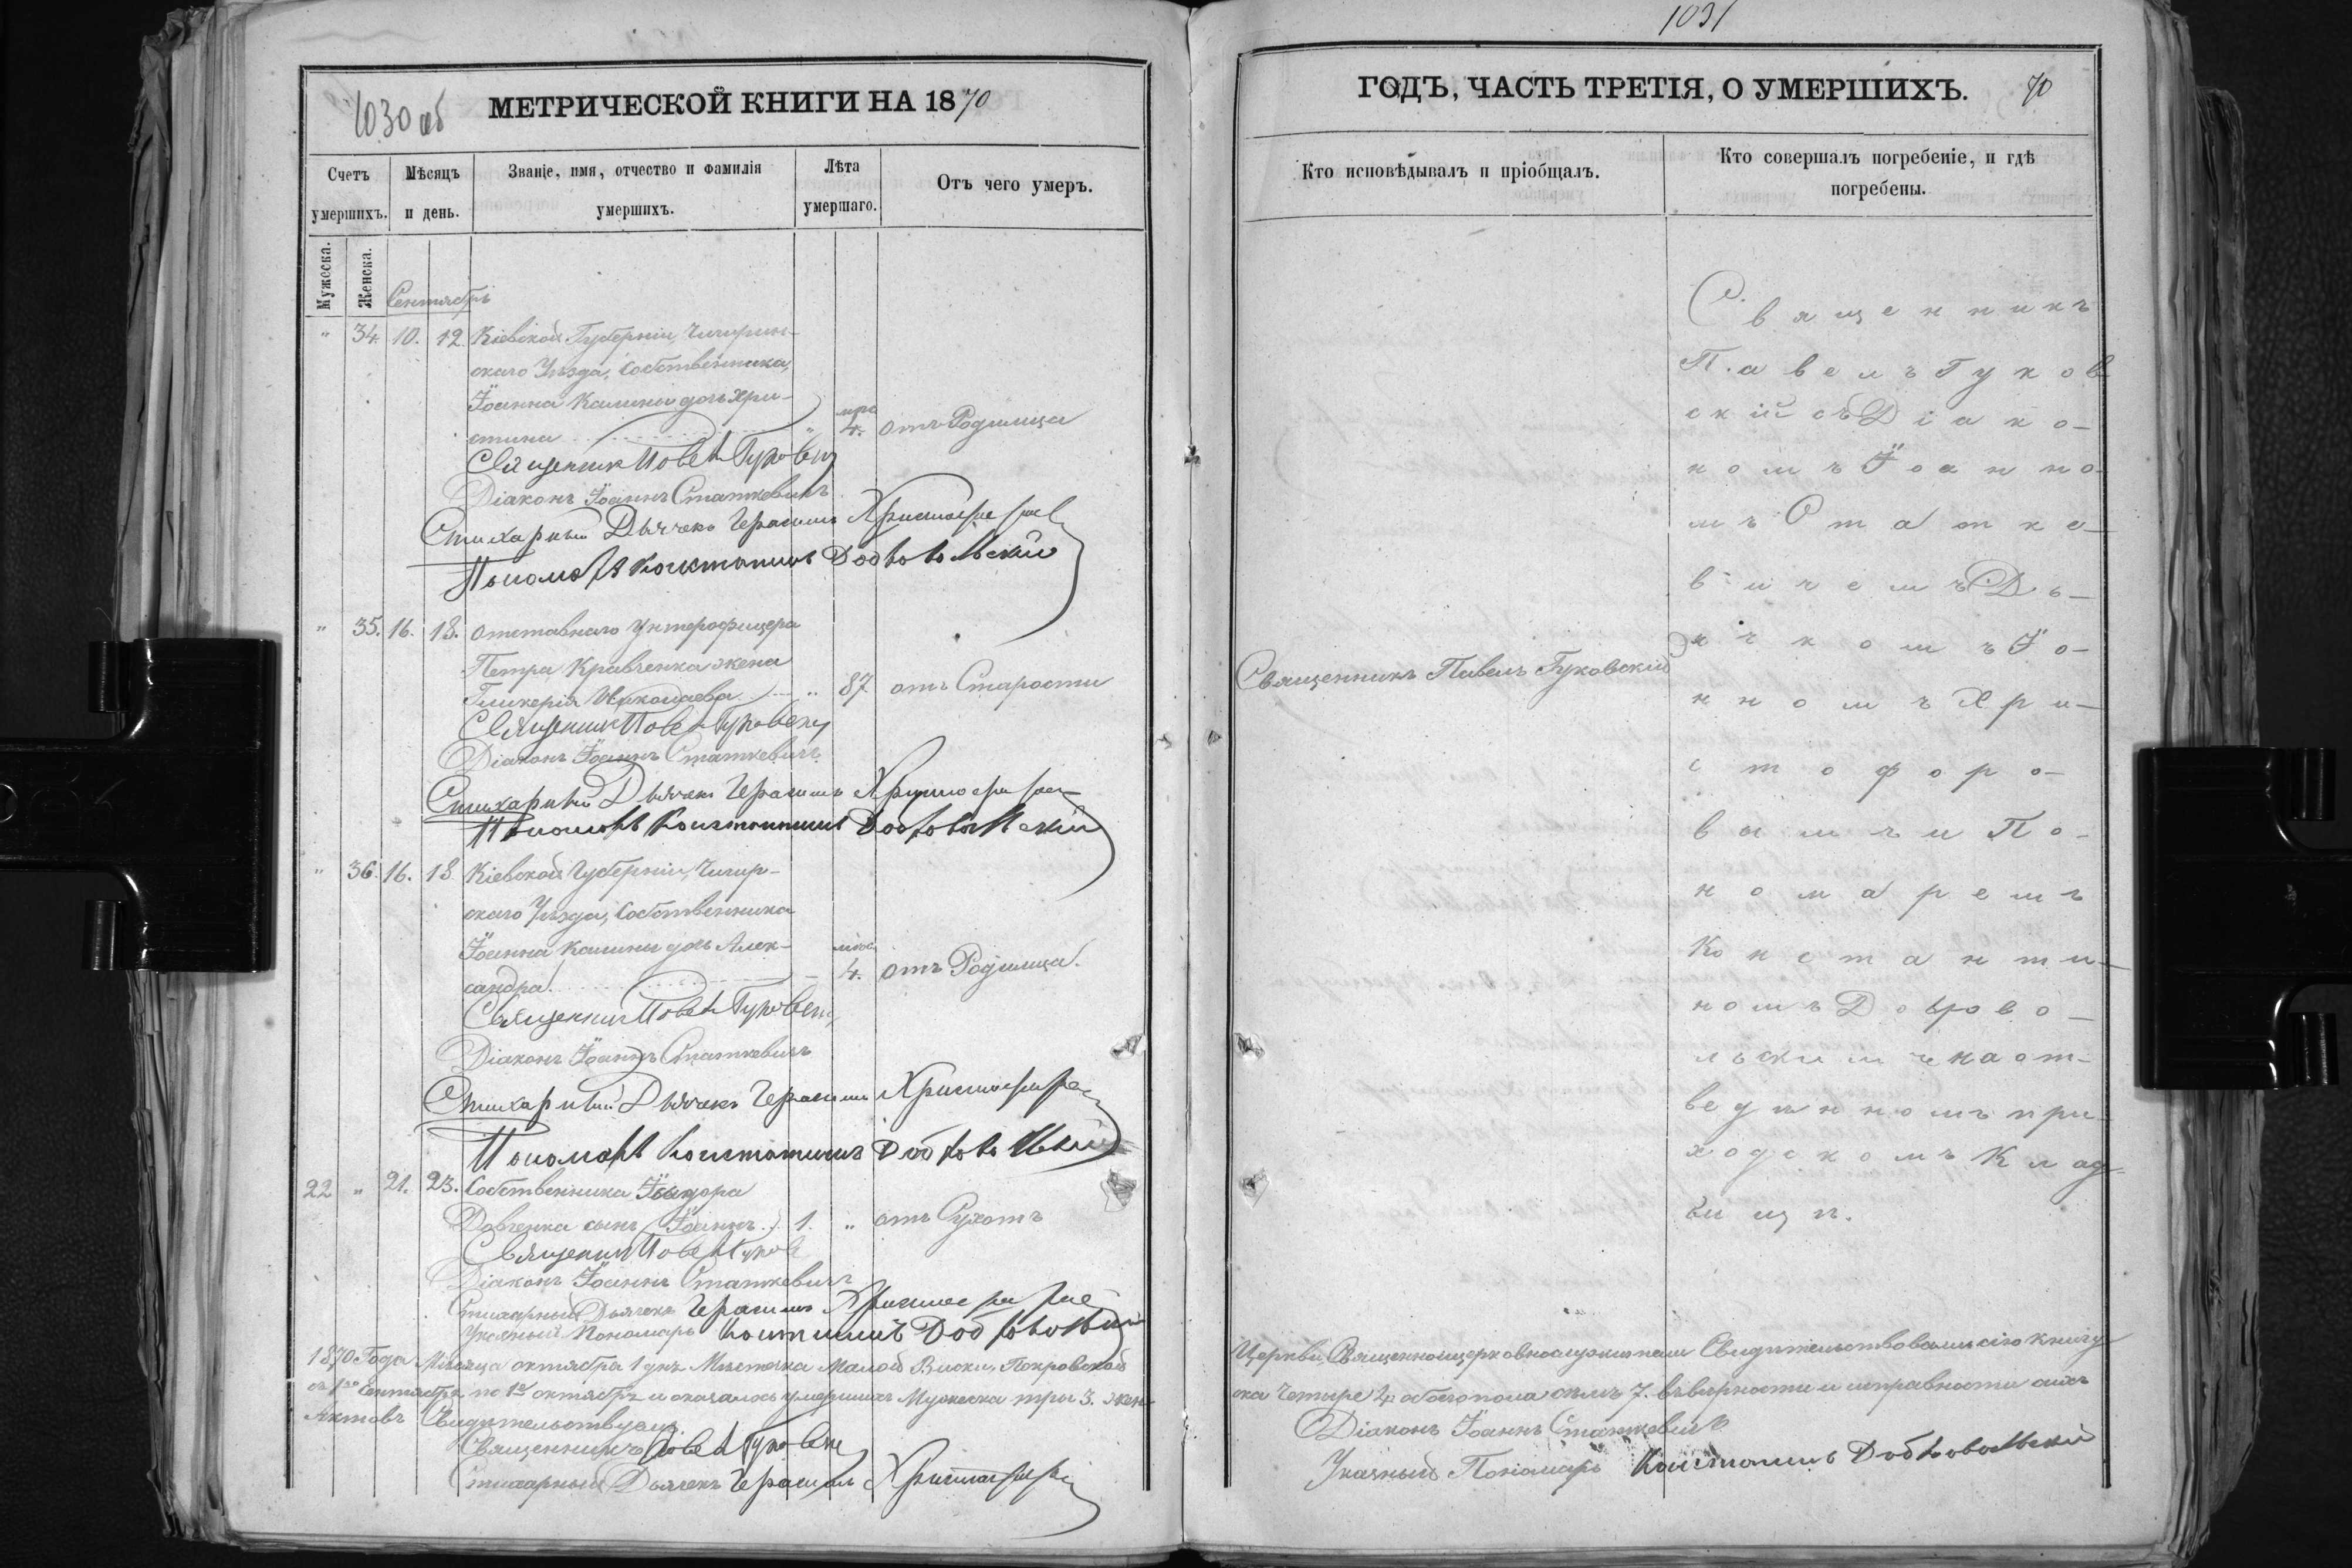 1030 об
МЕТРИЧЕСКОЙ КНИГИ НА 1870
Счетъ умершихъ.
Мѣсяцъ и день.
Званіе, имя, отчество и фамилія умершихъ.
Лѣта умершаго.
Отъ чего умеръ.
Мужеска.
Женска.
Сентябрь
" 34. 10. 12. Кіевской Губерніи, Чигирин-
скаго Уѣзда, Собственника,
Іоанна Калины дочь Хри-
стина " 4. отъ Родимца
Священник Павел Гуковскій
Діаконъ Іоаннъ Статкевичъ
Стихарный Дьячекъ Герасимъ Христофоров
Пономарь Константинъ Добровольский
" 35. 16. 18. Отставнаго Унтерофицера
Петра Кравченка жена
Гликерія Николаева " 87 отъ Старости
Священник Павел Гуковскій
Діаконъ Іоаннъ Статкевичъ
Стихарный Дьячекъ Герасимъ Христофоров
Пономарь Константинъ Добровольский
" 36. 16. 18 Кіевской Губерніи, Чигир-
скаго Уѣзда, Собственника
Іоанна Калины дочь Алек-
сандра 4. отъ Родимца.
Священник Павел Гуковскій
Діаконъ Іоаннъ Статкевичъ
Стихарный Дьячекъ Герасимъ Христофоров
Пономарь Константинъ Добровольский
22 " 21. 23. Собственника
Довченка сынъ Іоаннъ 1. " отъ Сухотъ
Священник Павел Гуков
Діаконъ Іоаннъ Статкевичъ
Стихарный Дьячекъ Герасимъ Христофоров
Указный Пономарь Константинъ Добровольский
1870 Года Мѣсяца октября 1 дня Мѣстечка Малой Виски, Покровской
съ 1го Сентября по 1е октября и оказалось умершихъ Мужеска три 3. жен-
Актовъ Свидѣтельствуемъ.
Священникъ Павел Гуковскій
Стихарный Дьячекъ Герасимъ Христофоров
1031
ГОДЪ, ЧАСТЬ ТРЕТІЯ, О УМЕРШИХЪ. 70
Кто исповѣдывалъ и пріобщалъ.
Кто совершалъ погребеніе, и гдѣ погребены.
Священникъ Павелъ Гуковскій
Священникъ
Павелъ Гуков
скій съ Діако-
номъ Іоанно-
мъ Статке-
вичемъ Дь-
ячкомъ Іо-
нномъ Хри-
стофоро-
вымъ и По-
номаремъ
Константи-
номъ Доброво-
льскимъ на от-
веденномъ при
ходскомъ Клад-
бищѣ.
Церкви, Священноцерковнослужители Свидѣтельствовали сію книгу
ска Четыре 4. обоего пола семь 7. въ вѣрности и исправности сихъ
Діаконъ Іоаннъ Статкевичъ
Указный Пономарь Константинъ Добровольский